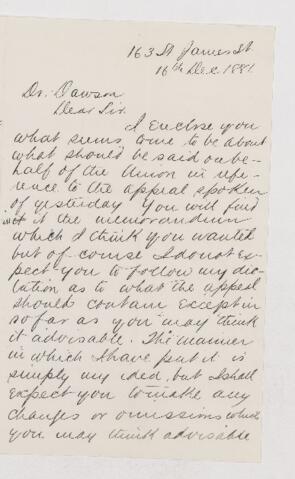 163 St James St.
16th Dec. 1881.
Dr. Dawson
Dear Sir.
I enclose you
what seems to me to be about
what should be said on be-
half of the Union in refe-
rence to the appeal spoken
of yesterday You will find
in it the memorandum
which I think you wanted
but of course I do not ex-
pect you to follow my dic-
tation as to what the appeal
should contain except in
so far as you may think
it advisable. The manner
in which I have put it is
simply my idea, but I shall
expect you to make any
changes or omissions which
you may think advisable